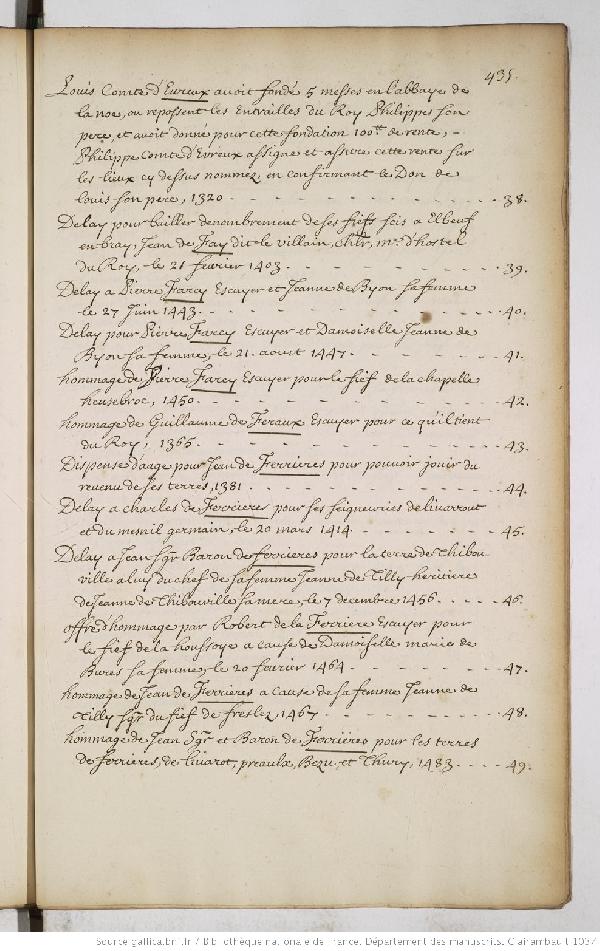 435.
Louis Comte d'Evreux avoit fondé 5 messes en l'abbaye de
la noe, ou reposent les Entrailles du Roy Philippes son
pere, et avoit donné pour cette fondation 100ᵗᵗ de rente, –
Philippe Comte d'Evreux assigne et assure cette rente sur
les lieux cy dessus nommez, en confirmant le Don de
Louis son pere, 1320 - - - - - - - - 38.
Delay pour bailler denombrement de ses fiefs scis a Elbeuf
en bray, Jean de Fay dit le villain, chlr, mᵉ d'hostel
du Roy, le 21 fevrier 1403. - - - - - - - 39.
Delay a Pierre Farcy Escuyer et Jeanne de Byon sa femme
le 27 Juin 1443. - - - - - - - - 40.
Delay pour Pierre Farcy Escuyer et Damoiselle Jeanne de
Byon sa femme, le 21. aoust 1447. - - - - - 41.
hommage de Pierre Farcy Escuyer pour le fief de la chapelle
heusebroc, 1450. - - - - - - - - 42.
hommage de Guillaume de Feraux Escuyer pour ce qu'il tient
du Roy, 1365. - - - - - - - - 43.
Dispense d'aage pour Jean de Ferrieres pour pouvoir jouir du
revenu de ses terres, 1381. - - - - - - - 44.
Delay a charles de Ferrieres pour ses seigneuries de livarrout
et du mesnil germain, le 20 mars 1414. - - - - 45.
Delay a Jean Sgr Baron de ferrieres pour la terre de Thibou
ville a luy du chef de sa femme Jeanne de Tilly heritiere
de Jeanne de Thibouville sa mere, le 7 decembre 1456. - - - - 46.
offre d'hommage par Robert de la Ferriere Escuyer pour
le fief de la houssoye a cause de Damoiselle marie de
Bures sa femme, le 20 fevrier 1464. - - - - - 47.
hommage de Jean de Ferrieres a cause de sa femme Jeanne de
Tilly Sgr du fief de fresles, 1467. - - - - - - 48.
hommage de Jean Sgr et Baron de Ferrieres pour les terres
de ferrieres, de livarot, preaulx, Bezu, et Thury, 1483. - - - - 49.
Source gallica.bnf.fr / Bibliothèque nationale de France. Département des manuscrits. Clairambault 1034